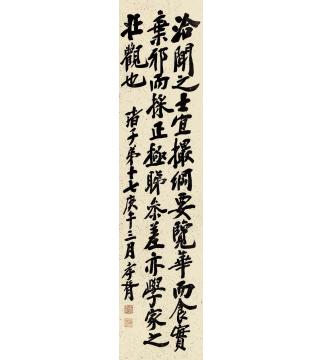 洽聞之士宜撮綱要覽華而食實
棄邪而採正極睇參差亦學家之
壯觀也 諸子第十七庚午三月孝胥